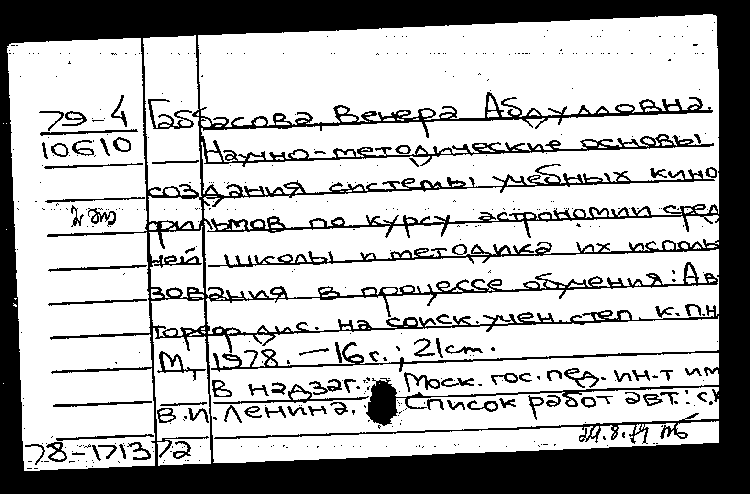 79-4 Габбасова, Венера Абдулловна.
10610 Научно-методические основы
создания системы учебных кино
фильмов по курсу астрономии сред
ней школы и методика их исполь
зования в процессе обучения: Ав
тореф. дис. на соиск. учен. степ. к.п.н
М., 1978. — 16 с.; 21 cm.
В надзаг.: Моск. гос. пед. ин-т им
В.И. Ленина. Список работ авт.: с.
78-171372